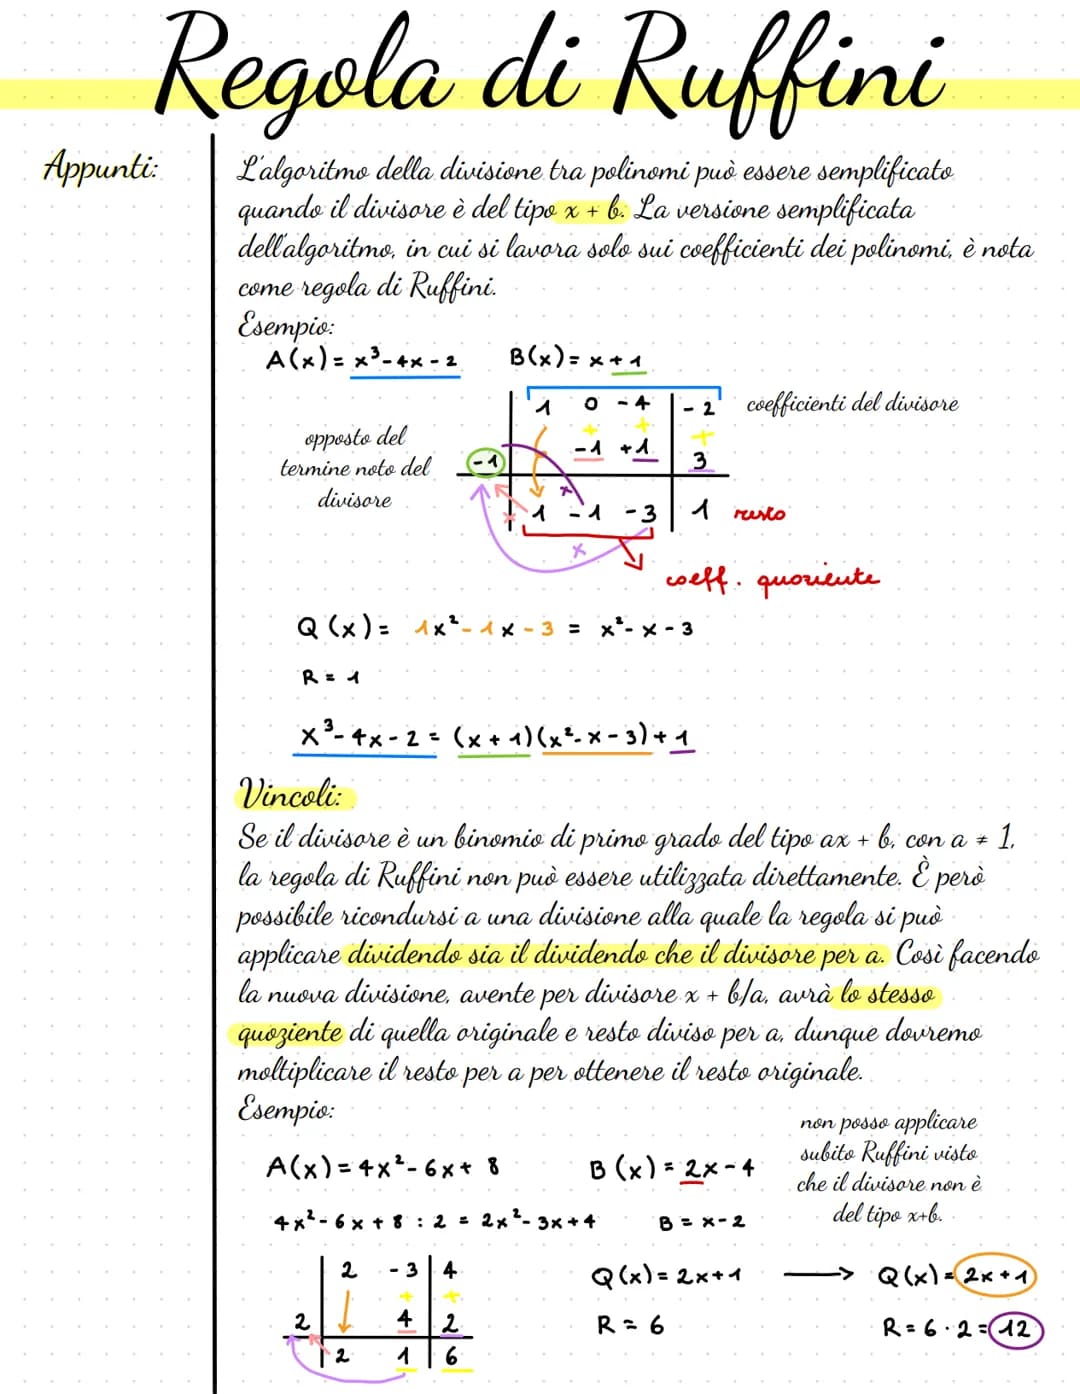 Regola di Ruffini
Appunti:
L'algoritmo della divisione tra polinomi può essere semplificato
quando il divisore è del tipo x + b. La versione semplificata
dell'algoritmo, in cui si lavora solo sui coefficienti dei polinomi, è nota
come regola di Ruffini.
Esempio:
A(x) = x³-4x-2 B(x) = x+1
1 0 -4 -2 coefficienti del divisore
+ + +
opposto del
termine noto del
divisore
-1 -1 +1 3
x
x 1 -1 -3 1 resto
x
coeff. quoziente
Q(x) = 1x²-1x-3 = x²-x-3
R = 1
x³-4x-2 = (x+1)(x²-x-3)+1
Vincoli:
Se il divisore è un binomio di primo grado del tipo ax + b, con a ≠ 1,
la regola di Ruffini non può essere utilizzata direttamente. È però
possibile ricondursi a una divisione alla quale la regola si può
applicare dividendo sia il dividendo che il divisore per a. Così facendo
la nuova divisione, avente per divisore x + b/a, avrà lo stesso
quoziente di quella originale e resto diviso per a, dunque dovremo
moltiplicare il resto per a per ottenere il resto originale.
Esempio:
non posso applicare
subito Ruffini visto
che il divisore non è
del tipo x+b.
A(x) = 4x²-6x+8 B(x) = 2x-4
4x²-6x+8 : 2 = 2x²-3x+4 B = x-2
2 -3 4
+ +
2 4 2
2 1 6
Q(x) = 2x+1 → Q(x) = 2x+1
R = 6 R = 6·2 = 12